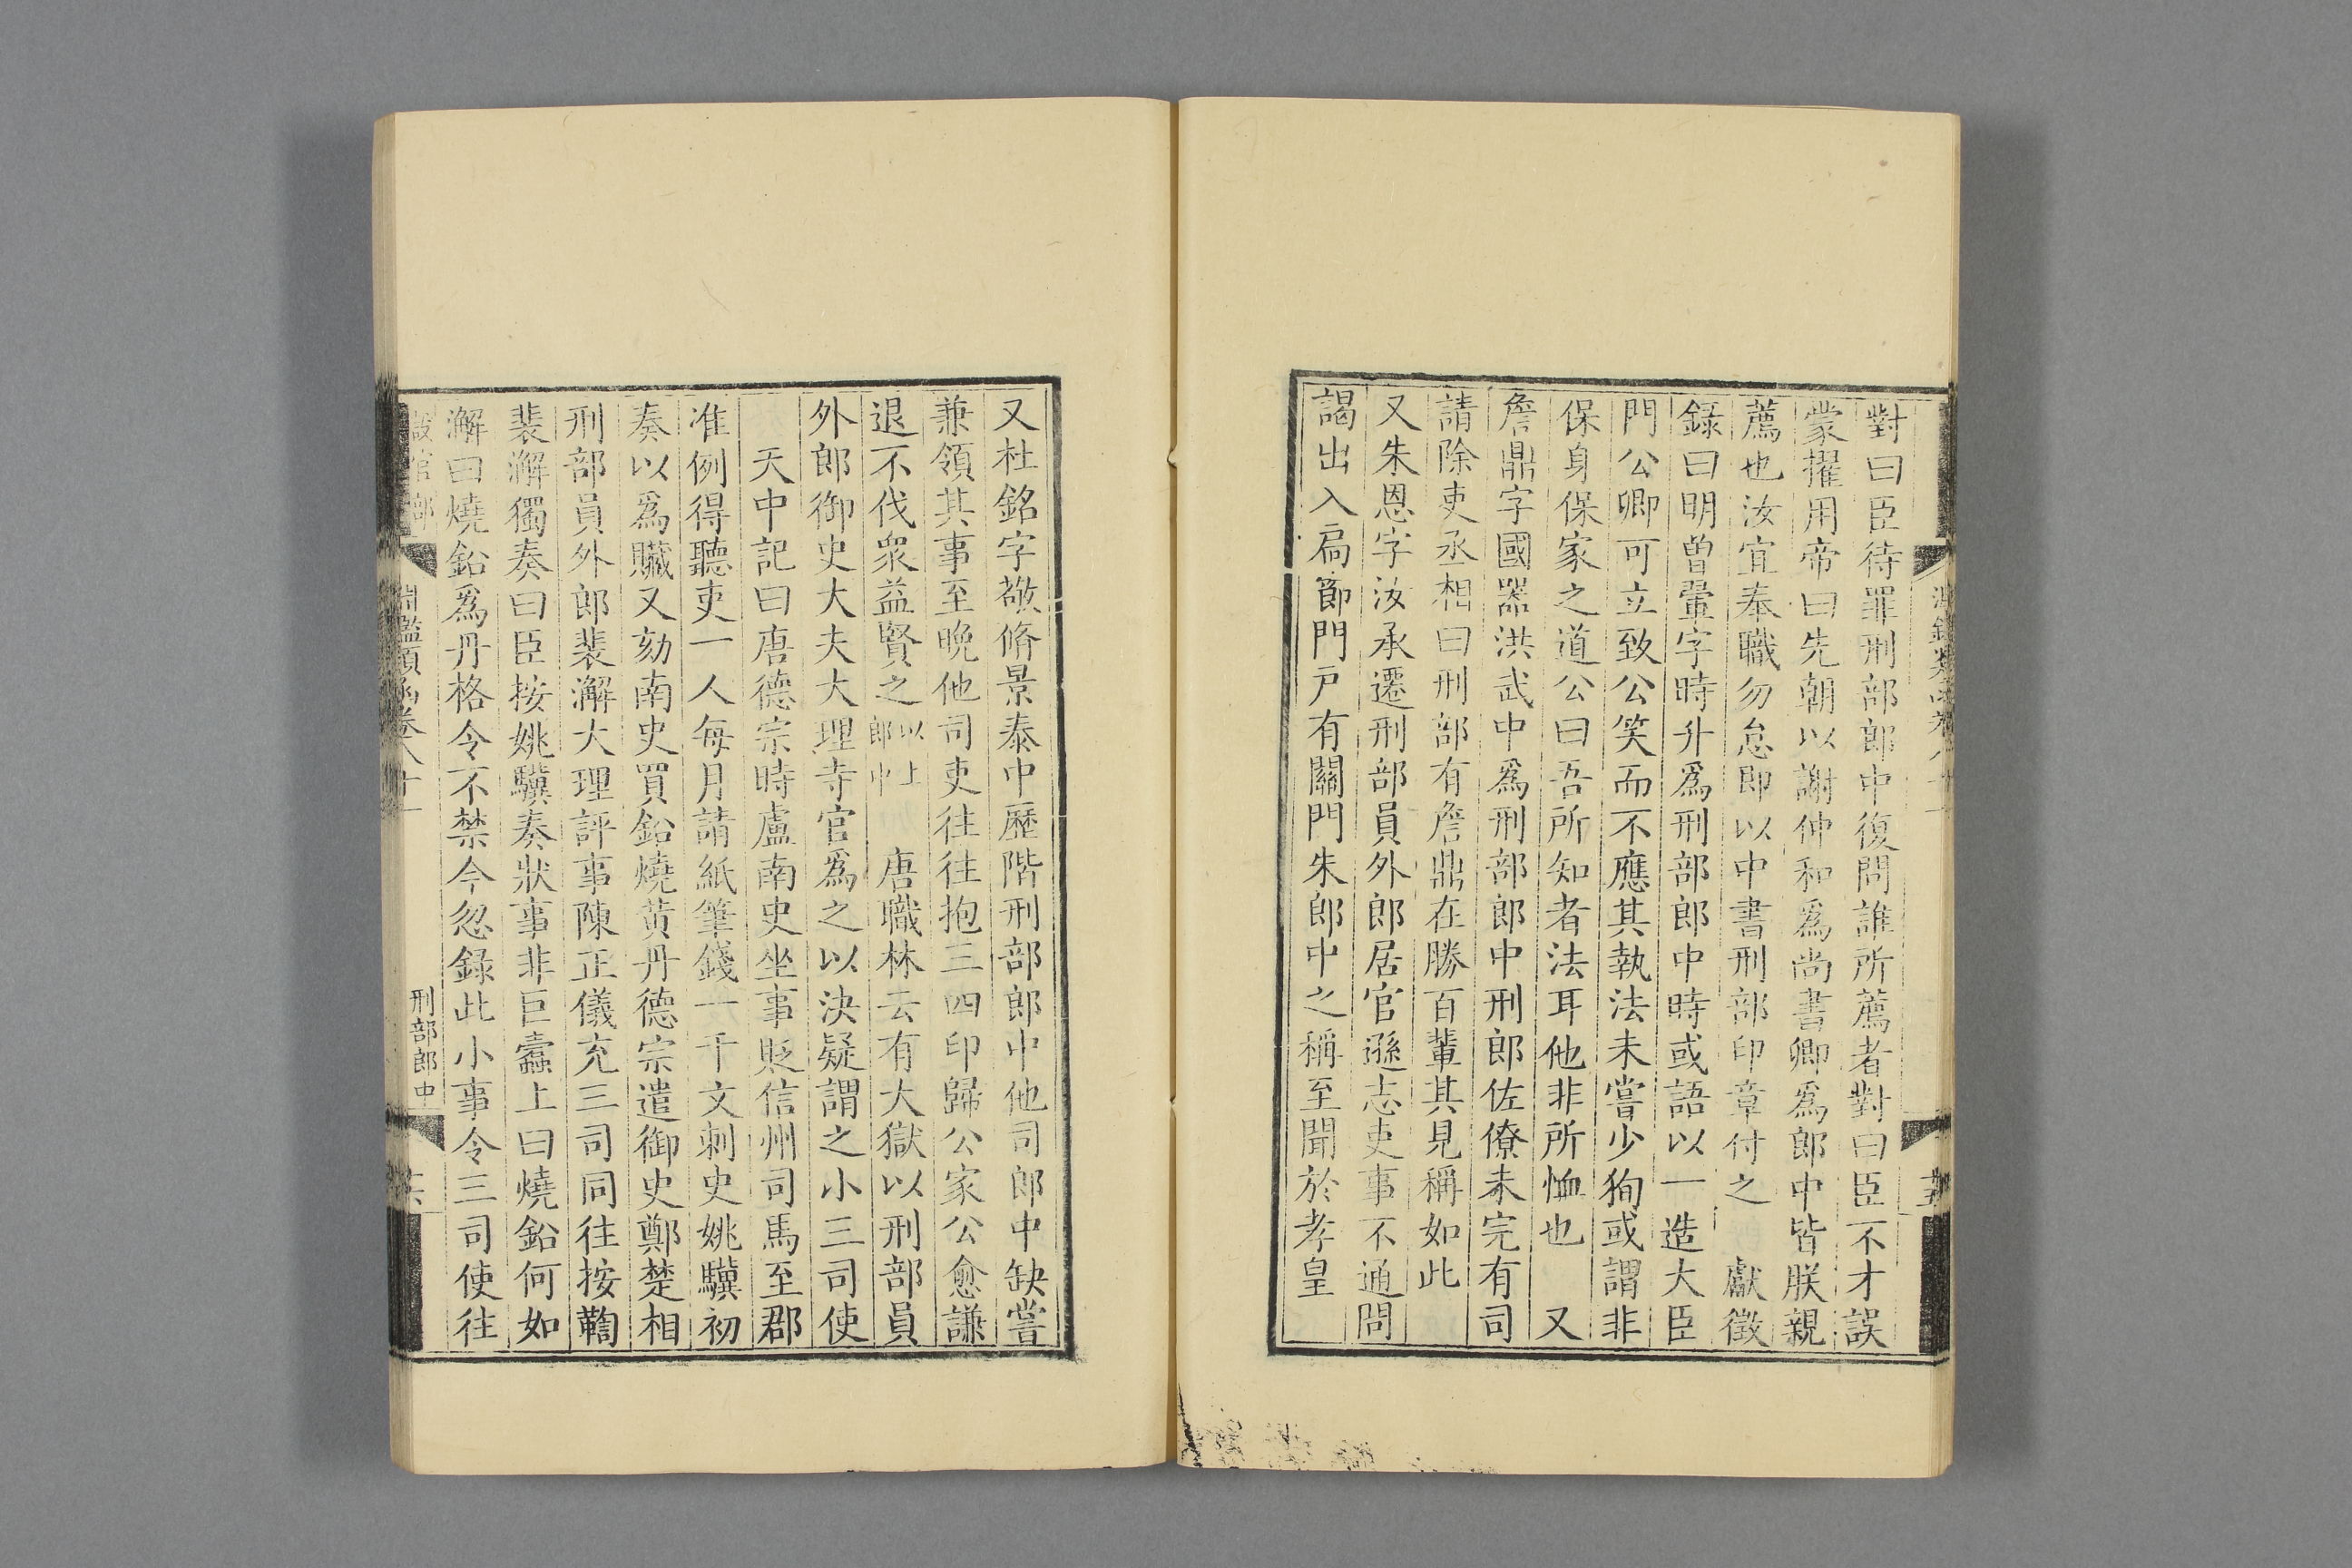 對曰臣待罪刑部郎中復問誰所薦者對曰臣不才誤
蒙擢用帝曰先朝以謝仲和爲尚書卿爲郎中皆朕親
薦也汝宜奉職勿怠即以中書刑部印章付之 獻徵
錄曰明曾翬字時升爲刑部郎中時或語以一造大臣
門公卿可立致公笑而不應其執法未嘗少狥或謂非
保身保家之道公曰吾所知者法耳他非所恤也 又
詹鼎字國器洪武中爲刑部郎中刑郎佐僚未完有司
請除吏丞相曰刑部有詹鼎在勝百輩其見稱如此
又朱恩字汝承遷刑部員外郎居官遜志吏事不通問
謁出入扃鄃門戶有關門朱郎中之稱至聞於孝皇
又杜銘字敬脩景泰中歷階刑部郎中他司郎中缺嘗
兼領其事至晚他司吏往往抱三四印歸公家公愈謙
退不伐衆益賢之以上郎中 唐職林云有大獄以刑部員
外郎御史大夫大理寺官爲之以決疑謂之小三司使
天中記曰唐德宗時盧南史坐事貶信州司馬至郡
准例得聽吏一人每月請紙筆錢一千文刺史姚驥初
奏以爲贓又劾南史買鉛燒黃丹德宗遣御史鄭楚相
刑部員外郎裴澥大理評事陳正儀充三司同往按鞫
裴澥獨奏曰臣按姚驥奏狀事非巨蠹上曰燒鉛何如
澥曰燒鉛爲丹格令不禁今忽錄此小事令三司使往
設官部
淵鑑類函卷八十一
刑部郎中